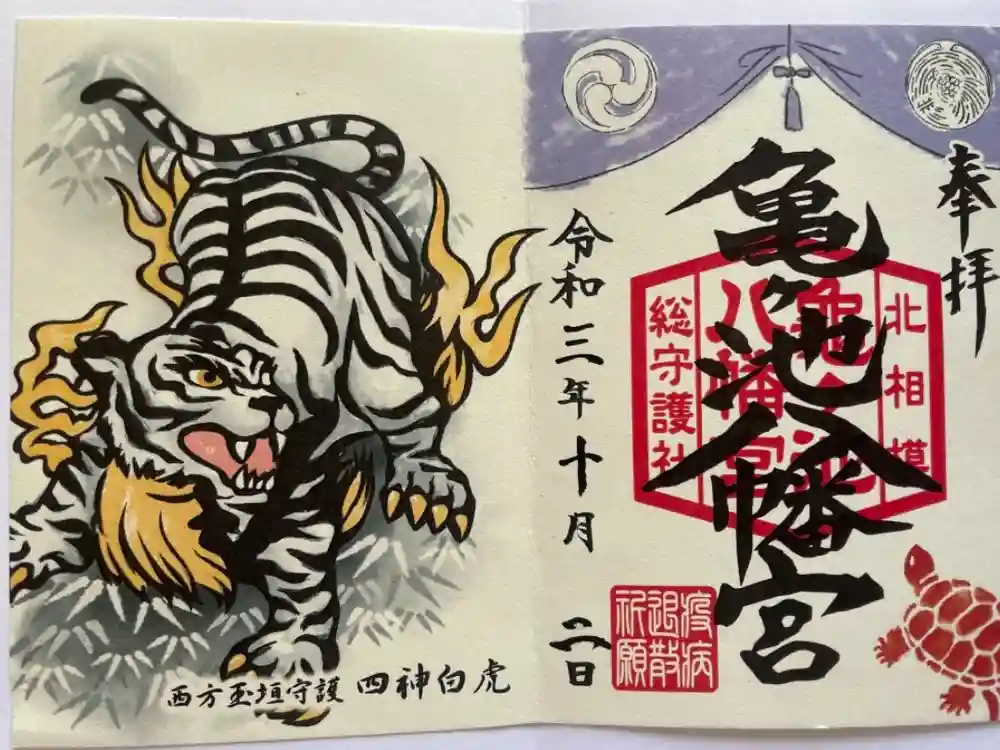 奉拝
亀ヶ池八幡宮
北相模
亀ヶ池
八幡宮
総守護社
疫病
退散
祈願
令和三年十月二日
西方玉垣守護 四神白虎